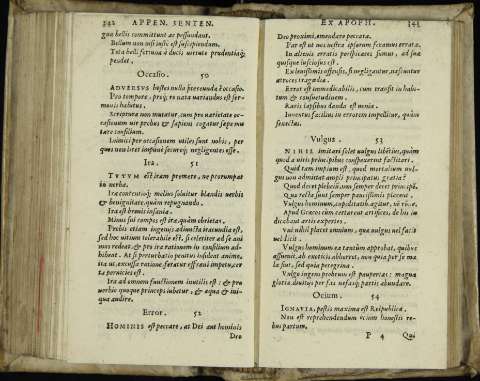 342 APPEN. SENTEN.
gna bellis committunt ac pessundant.
Bellum non nisi iustè est suscipiendum.
Tota belli fortuna à ducis virtute prudentiaq;
pendet.
Occasio. 50
ADVERSVS hostes nulla præreunda est occasio.
Pro tempore, proq; re nata variandus est ser-
monis habitus.
Scriptura non mutatur, cum pro varietate oc-
casionum vir probus & sapiens cogatur sæpe mu-
tare consilium.
Inimici per occasionem vtiles sunt nobis, per
quos non licet impunè securoq; negligentes esse.
Ira. 51
TVTVM est iram premere, ne prorumpat
in verba.
Ira contentioq; melius soluitur blandis verbis
& benignitate, quàm repugnando.
Ira est breuis insania.
Minus sui compos est ira, quàm ebrietas.
Probis etiam ingeniis adiuncta iracundia est,
sed hoc vitium tolerabile est, si celeriter ad se ani-
mus redeat, & pro ira rationem in consilium ad-
hibeat. At si perturbatio penitus insideat animo,
ita vt, excussa ratione feratur effræni impetu, cer-
ta pernicies est.
Ira ad omnem functionem inutilis est: & pro
uerbio quoque princeps iubetur, & æqua & ini-
qua audire.
Error. 52
HOMINIS est peccare, at Dei aut hominis
Deo
EX APOPH. 343
Deo proximi, emendare peccata.
Par est vt nos nostra ipsorum fteamur errata.
In alienis erratis perspicaces sumus, ad sua
quisque lusciosus est.
Ex leuissimis offensis, si negligantur, nascuntur
atroces tragœdiæ.
Error est immedicabilis, cum transit in habi-
tum & consuetudinem.
Raris lapsibus danda est venia.
Inuentus facilius in errorem impellitur, quàm
senectus.
Vulgus. 53
NIHIL imitari solet vulgus libétius, quàm
quod à vitis principibus conspexerint factitari.
Quid tam impium est, quod mortalium vul-
gus non admittat ampli principatus gratia?
Quod decet plebeiũ, non semper decet principẽ.
Quæ recta sunt semper paucissimis placent.
Vulgus hominum, cupiditatib. agitur, nõ rõne.
Apud Græcos cum certarent artifices, de his iu-
dicabant artis expertes.
vni nihil placet omnium, qua vulgus nel facit
vel dicit.
Vulgus hominum ea tantùm approbat, quibus
assueuit, ab exoticis abhorret, non quia per se ma
la sint, sed quia peregrina.
Vulgo ingens probrum est paupertas: magna
gloria, diuitiis per fas nefasq; partis abundare.
Otium. 54
IGNAVIA, pestis maxima est Reipublicæ.
Non est reprehendendum otium honestis re-
bus partum.
P 4 Qui